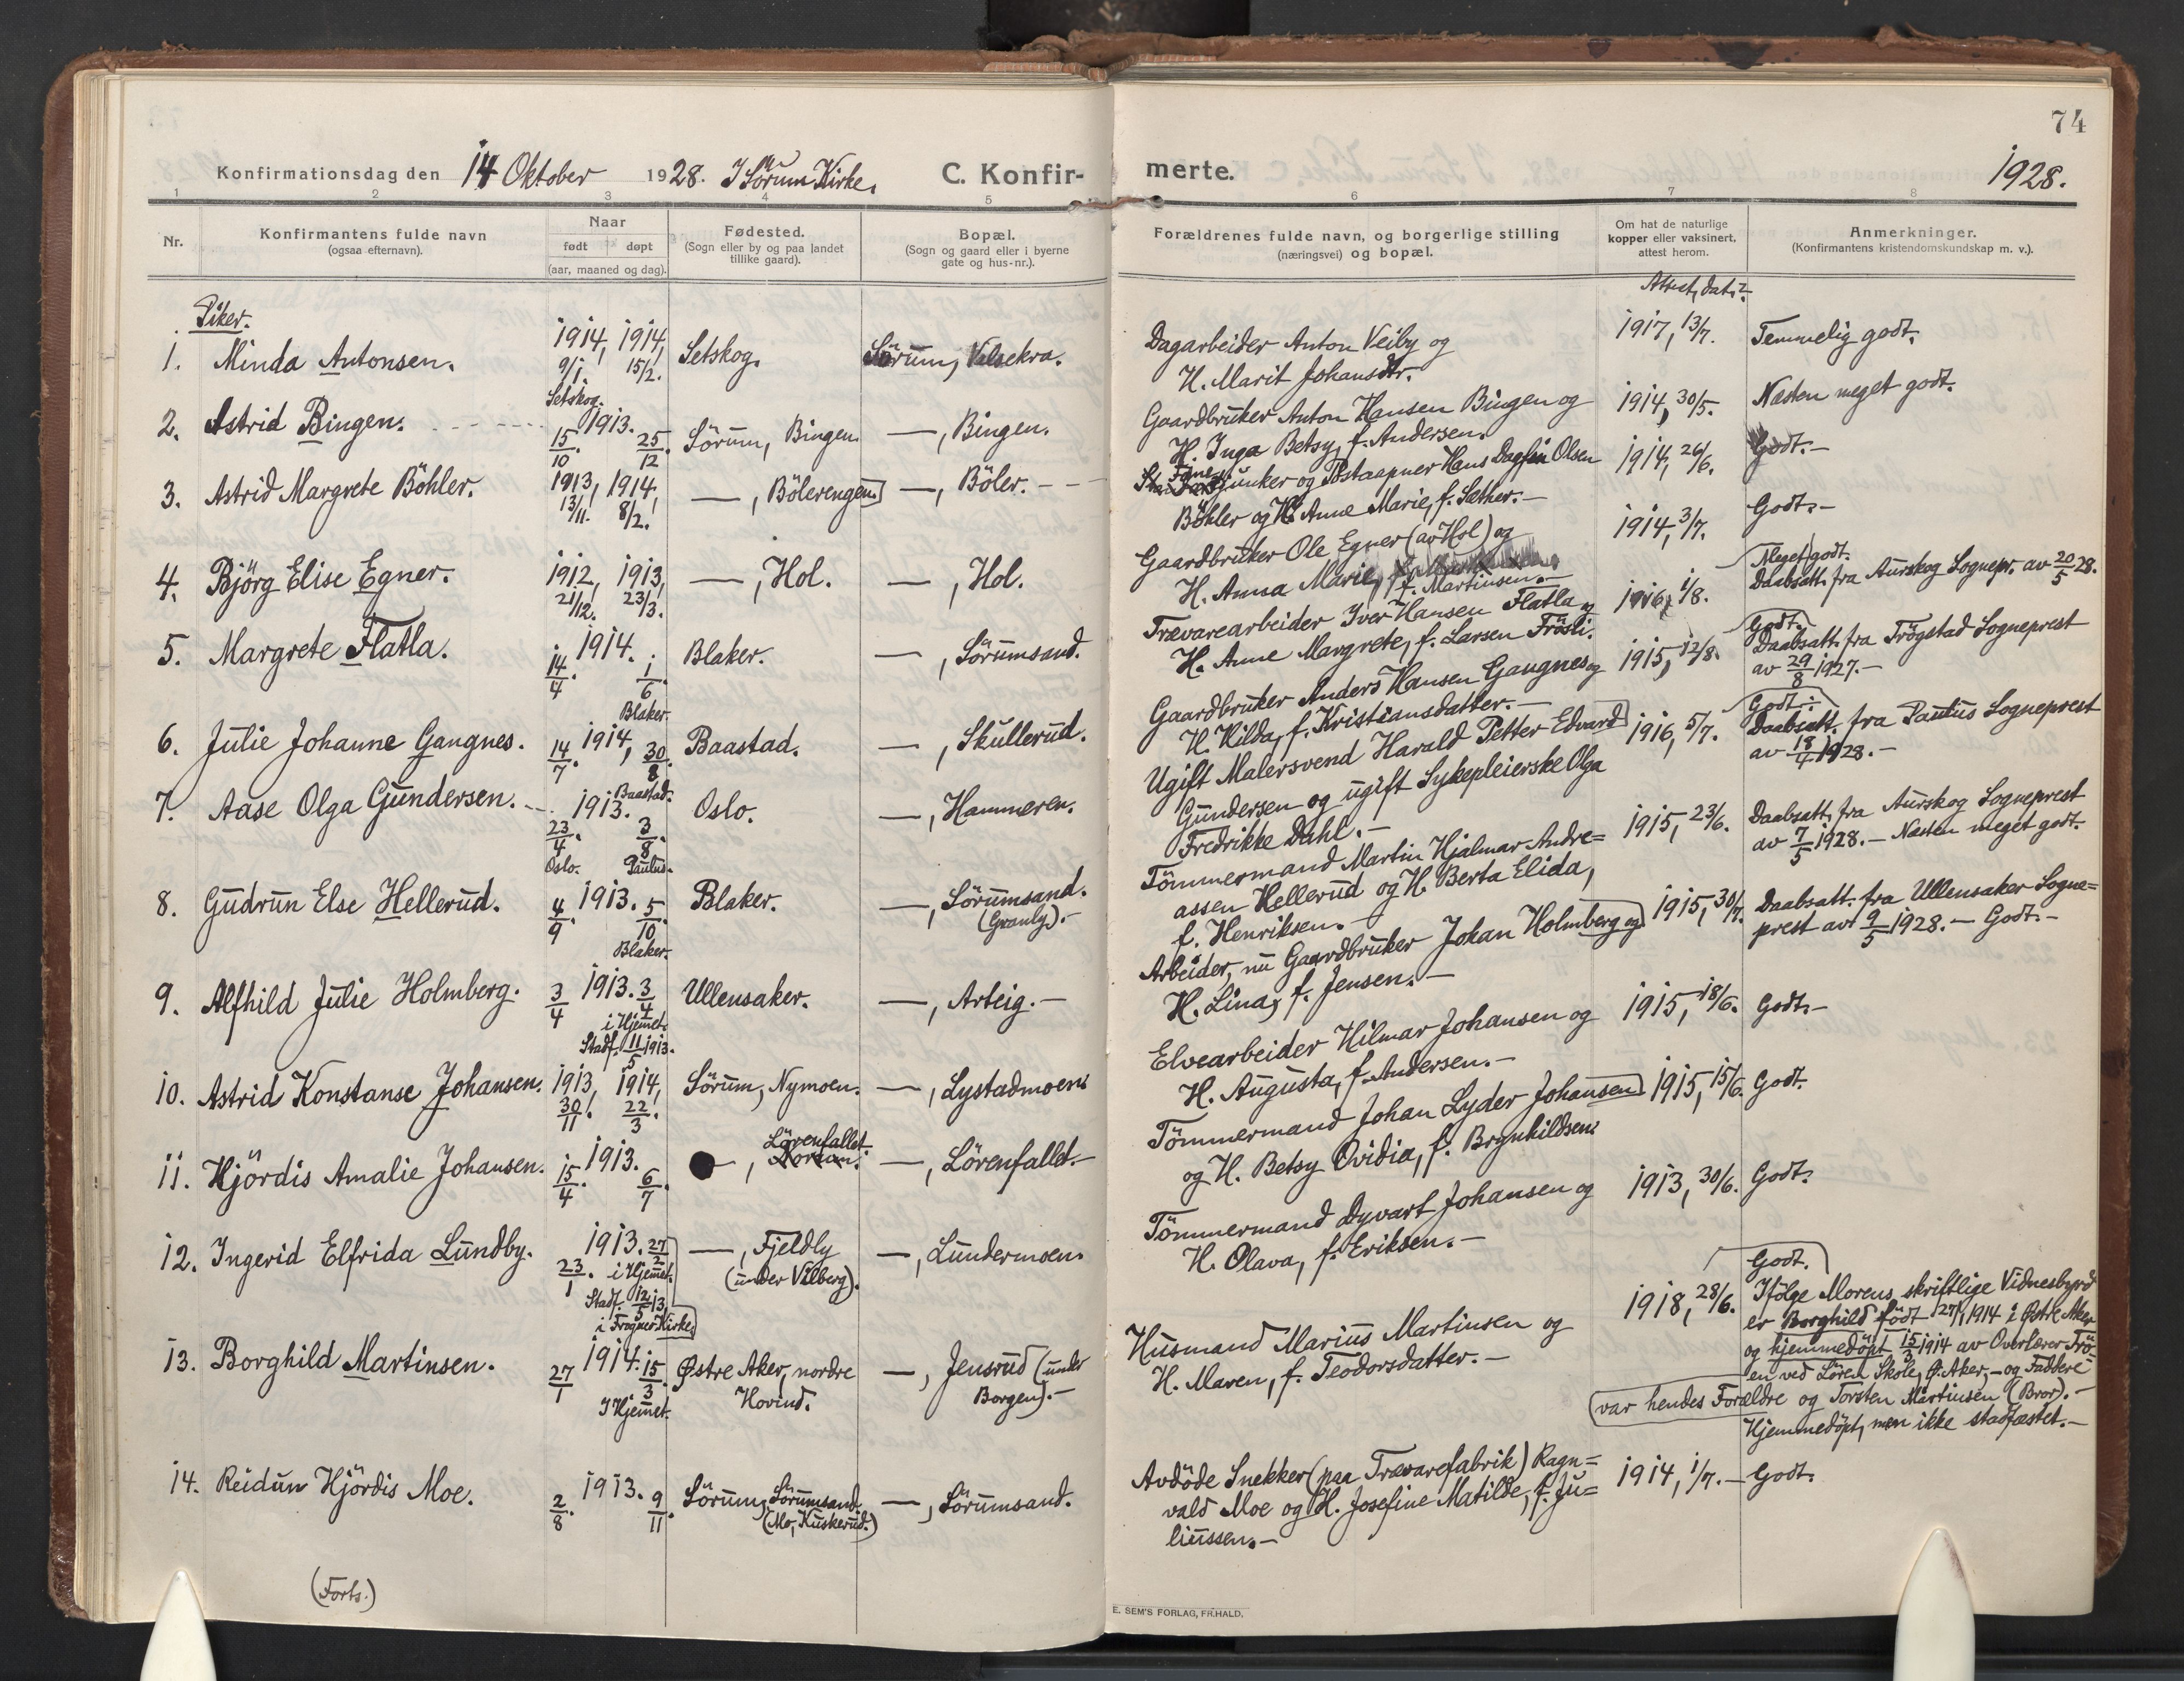 74
Konfirmationsdag den 14 Oktober 1928. I Sörum Kirke.
C. Konfir-
merte.
1928.
1 2 3 4 5 6 7 8
Nr.
Konfirmantens fulde navn
(ogsaa efternavn).
Naar
født døpt
(aar, maaned og dag).
Fødested.
(Sogn eller by og paa landet
tillike gaard).
Bopæl.
(Sogn og gaard eller i byerne
gate og hus-nr.).
Forældrenes fulde navn, og borgerlige stilling
(næringsvei) og bopæl.
Om hat de naturlige
kopper eller vaksinert,
attest herom.
Anmerkninger.
(Konfirmantens kristendomskundskap m. v.).
Attest, dat.
Piker.
1. Minda Antonsen.
1914, 1914,
9/1. 15/2.
Setskog.
Setskog.
Sörum, Valsekra.
Dagarbeider Anton Veiby og
H. Marit Johansdtr.
1917, 13/7.
Temmelig godt.
2. Astrid Bingen.
1913.
15/10. 25/12.
Sörum, Bingen.
—, Bingen.
Gaardbruker Anton Hansen Bingen og
H. Inga Betsy, f. Andersen.
1914, 30/5.
Næsten meget godt.
3. Astrid Margrete Böhler.
1913, 1914,
13/11. 8/2.
—, Bölerengen.
—, Böler. - -
junker og Postaapner Hans Dagfin Olsen
Böhler og H. Anne Marie, f. Sæther. —
1914, 26/6.
Godt. —
4. Björg Elise Egner.
1912, 1913,
21/12. 23/3.
—, Hol.
—, Hol.
Gaardbruker Ole Egner (av Hol) og
H. Anna Marie, f. Martinsen. —
1914, 3/7.
Godt. —
5. Margrete Flatla.
1914.
14/4. 1/6.
Blaker.
Blaker.
—, Sörumsand.
Trævarearbeider Iver Hansen Flatla og
H. Anne Margrete, f. Larsen Frösli.
1916, 1/8.
Meget godt.
Daabsatt. fra Aurskog Sognepr. av 20/5 28.
6. Julie Johanne Gangnes.
1914,
14/7. 30/8.
Baastad.
Baastad.
—, Skullerud.
Gaardbruker Anders Hansen Gangnes og
H. Hilda, f. Kristiansdatter. —
1915, 12/8.
Godt.
Daabsatt. fra Trögstad Sogneprest
av 29/8 1927. —
7. Aase Olga Gundersen.
1913.
23/4. 3/8.
Oslo. Paulus.
Oslo.
—, Hammeren.
Ugift Malersvend Harald Petter Edvard
Gundersen og ugift Sykepleierske Olga
Fredrikke Dahl. —
1916, 5/7.
Godt.
Daabsatt. fra Paulus Sogneprest
av 18/4 1928. —
8. Gudrun Else Hellerud.
1913.
4/9 5/10.
Blaker.
Blaker.
—, Sörumsand.
(Granly). —
Tömmermand Martin Hjalmar Andre=
assen Hellerud og H. Berta Elida,
f. Henriksen.
1915, 23/6.
Daabsatt. fra Aurskog Sogneprest
av 7/5 1928. — Næsten meget godt.
9. Alfhild Julie Holmberg.
1913.
3/4 3/4
i Hjemmet.
Stadf. 11/5 1913.
Ullensaker.
—, Arteig. —
Arbeider, nu Gaardbruker Johan Holmberg og
H. Lina, f. Jensen. —
1915, 30/7.
Daabsatt. fra Ullensaker Sogne=
prest av 9/5 1928. — Godt. —
10. Astrid Konstanse Johansen.
1913, 1914,
30/11. 22/3.
Sörum, Nymoen.
—, Lystadmoen.
Elvearbeider Hilmar Johansen og
H. Augusta, f. Andersen. —
1915, 18/6.
Godt. —
11. Hjördis Amalie Johansen.
1913.
15/4. 6/7.
—, Lörenfallet.
—, Lörenfallet. —
Tömmermand Johan Lyder Johansen
og H. Betsy Ovidia, f. Brynhildsen.
1915, 15/6.
Godt.
12. Ingerid Elfrida Lundby.
1913.
23/1. 27/2
i Hjemet.
Stadf. 12/5 13,
i Frogner Kirke.
—, Fjeldly
(under Vilberg).
—, Lundermoen.
Tömmermand Dyvart Johansen og
H. Olava, f. Eriksen. —
1913, 30/6.
Godt.
13. Borghild Martinsen.
1914.
27/1 15/3.
I Hjemet.
Østre Aker, nordre
Hovind.
—, Jensrud (under
Borgen). —
Husmand Marius Martinsen og
H. Maren, f. Teodorsdatter. —
1918, 28/6.
Godt.
Ifölge Morens skriftlige Vidnesbyrd
er Borghild födt 27/1 1914 i Østre Aker
og hjemmedöpt 15/3 1914 av Overlærer Frö-
en ved Lören Skole, Ø. Aker, — og Faddere
var hendes Forældre og Torsten Martinsen (Bror). —
Hjemmedöpt, men ikke stadfæstet. —
14. Reidun Hjördis Moe.
1913.
2/8. 9/11.
Sörum, Sörumsand.
(Mo, Kuskerud.)
—, Sörumsand.
Avdöde Snekker (paa Trævarefabrik) Ragn=
vald Moe og H. Josefine Matilde, f. Ju=
liussen. —
1914, 1/7. —
Godt.
(Forts.)
E. SEM'S FORLAG, FR.HALD.